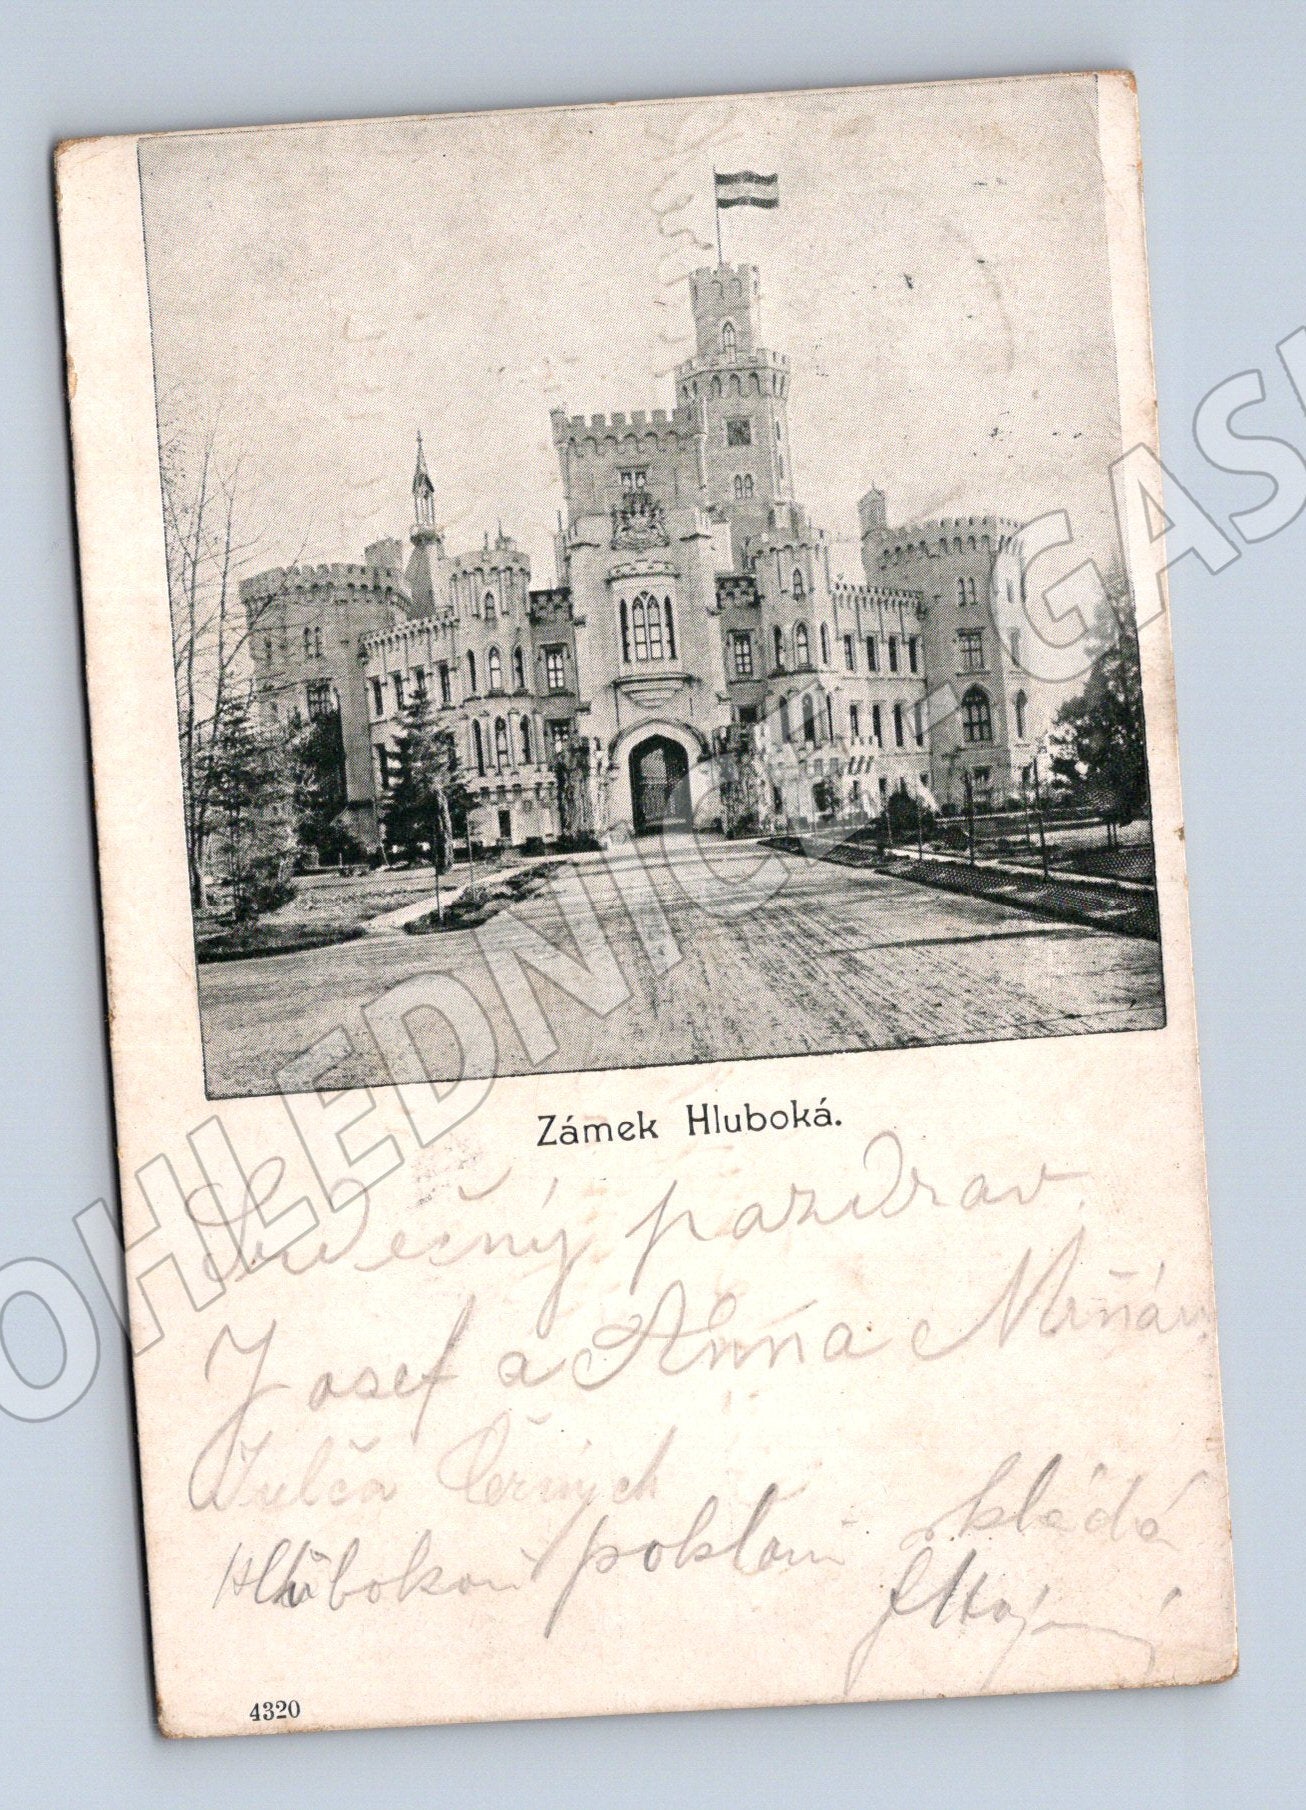 Zámek Hluboká.
Srdečný pozdrav
Josef a Anna
Julča Černých
Hlubokou poklonu skládá
4320
POHLEDNICE-GAS